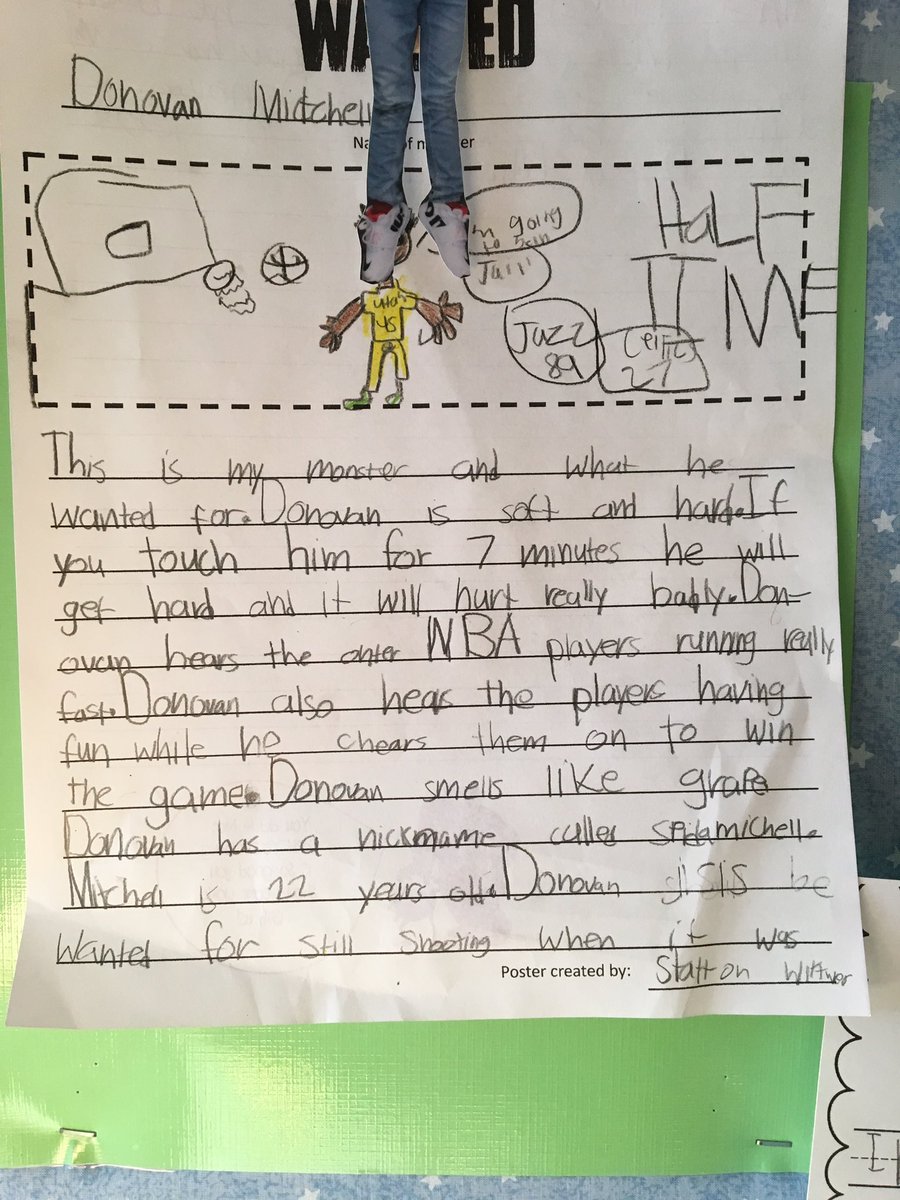 WANTED
Donovan Mitchell
Name of monster
going
Jazz
89
Celtics
27
HALF
TIME
Utah
45
This is my monster and what he
wanted for. Donovan is soft and hard. If
you touch him for 7 minutes he will
get hard and it will hurt really badly. Don-
ovan hears the ohter NBA players running really
fast. Donovan also hears the players having
fun while he chears them on to win
the game. Donovan smells like grape
Donovan has a nickmame culled spidamichell.
Mitchell is 22 years old. Donovan is be
wanted for still shooting when it was
Poster created by: Statton Wittwer